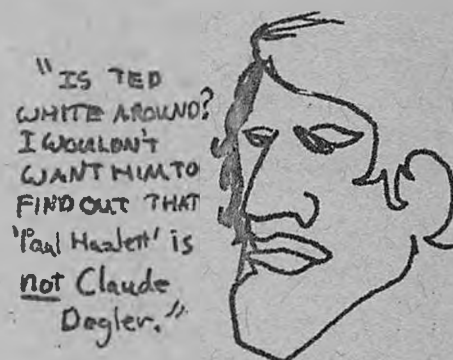 "IS TED
WHITE AROUND?
I WOULDN'T
WANT HIM TO
FIND OUT THAT
'Paul Hazlett' is
not Claude
Degler."